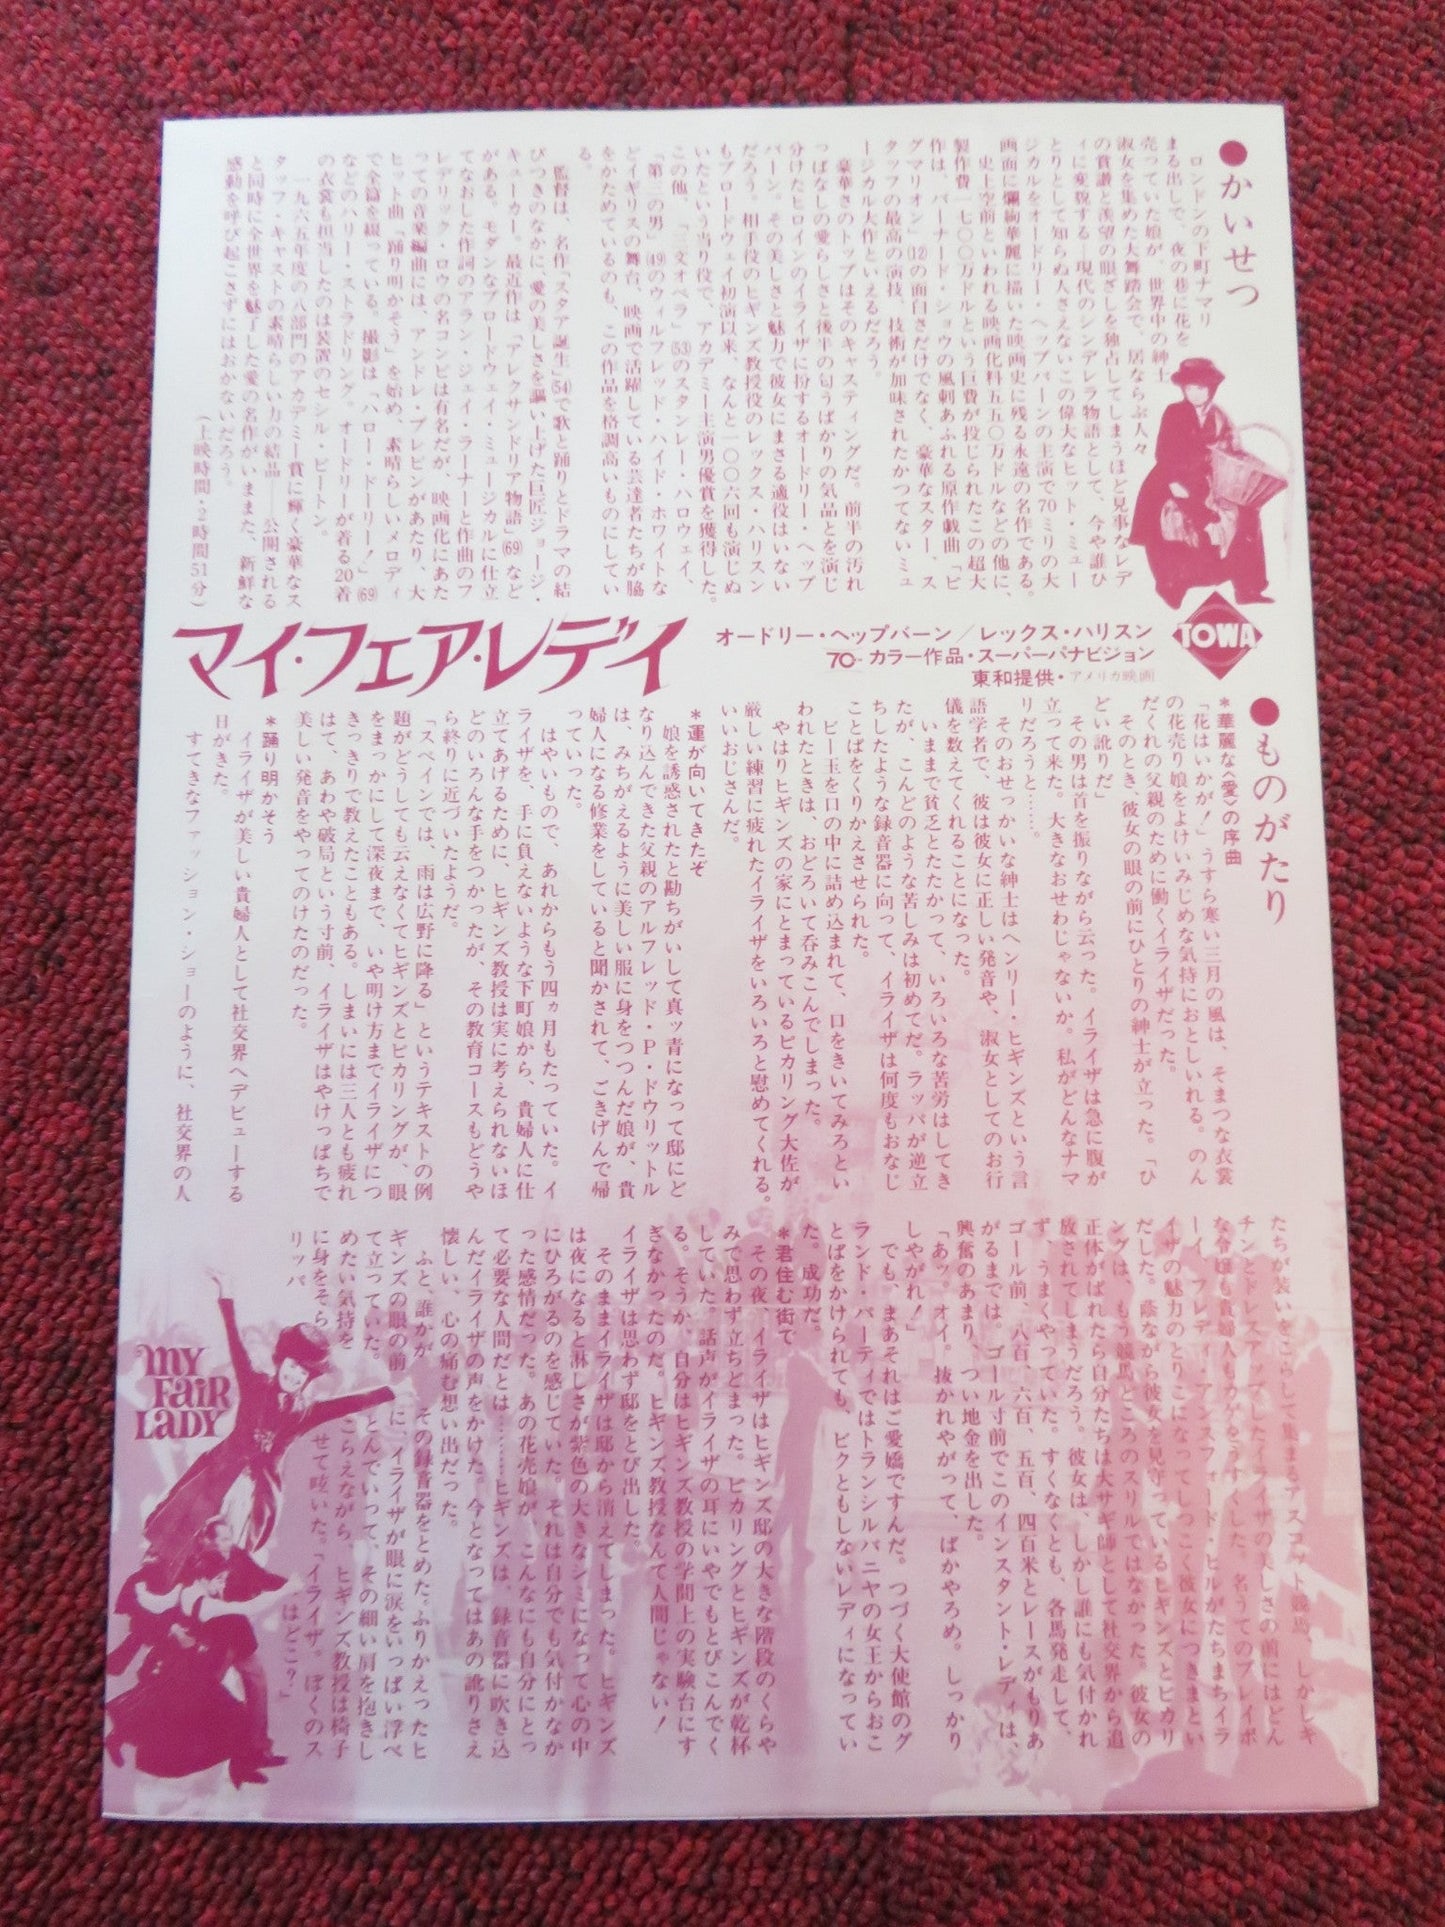 ●かいせつ
ロンドンの下町ナマリ
まる出しで、夜の巷に花を
売っていた娘が、世界中の紳士
淑女を集めた大舞踏会で、居ならぶ人々
の賞讃と羨望の眼ざしを独占してしまうほど見事なレデ
ィに変貌する――現代のシンデレラ物語として、今や誰ひ
とりとして知らぬ人さえないこの偉大なヒット・ミュー
ジカルをオードリー・ヘップバーンの主演で70ミリの大
画面に爛絢華麗に描いた映画史に残る永遠の名作である。
史上空前といわれる映画化料五五〇万ドルなどの他に、
製作費一七〇〇万ドルという巨費が投じられたこの超大
作は、バーナード・ショウの風刺あふれる原作戯曲「ピ
グマリオン」(12)の面白さだけでなく、豪華なスター、ス
タッフの最高の演技、技術が加味されたかつてないミュ
ージカル大作といえるだろう。
豪華さのトップはそのキャスティングだ。前半の汚れ
っぱなしの愛らしさと後半の匂うばかりの気品とを演じ
分けたヒロインのイライザに扮するオードリー・ヘップ
バーン。その美しさと魅力で彼女にまさる適役はいない
だろう。相手役のヒギンズ教授役のレックス・ハリスン
もブロードウェイ初演以来、なんと一〇〇六回も演じぬ
いたという当り役で、アカデミー主演男優賞を獲得した。
この他、「三文オペラ」(53)のスタンレー・ハロウェイ、
「第三の男」(49)のウィルフレッド・ハイド・ホワイトな
どイギリスの舞台、映画で活躍している芸達者たちが脇
をかためているのも、この作品を格調高いものにしてい
る。
監督は、名作「スタア誕生」(54)で歌と踊りとドラマの結
びつきのなかに、愛の美しさを謳い上げた巨匠ジョージ・
キューカー。最近作は「アレクサンドリア物語」(69)など
がある。モダンなブロードウェイ・ミュージカルに仕立
てなおした作詞のアラン・ジェイ・ラーナーと作曲のフ
レデリック・ロウの名コンビは有名だが、映画化にあた
っての音楽編曲には、アンドレ・プレビンがあたり、大
ヒット曲「踊り明かそう」を始め、素晴らしいメロディ
で全篇を綴っている。撮影は「ハロー・ドーリー！」(69)
などのハリー・ストラドリング。オードリーが着る20着
の衣裳も担当したのは装置のセシル・ビートン。
一九六五年度の八部門のアカデミー賞に輝く豪華なス
タッフ・キャストの素晴らしい力の結晶――公開される
と同時に全世界を魅了した愛の名作がいままた、新鮮な
感動を呼び起こさずにはおかないだろう。
(上映時間・2時間51分)
TOWA
オードリー・ヘップバーン／レックス・ハリスン
70㎜カラー作品・スーパーパナビジョン
東和提供・アメリカ映画
マイ・フェア・レディ
●ものがたり
*華麗な〈愛〉の序曲
「花はいかが！」うすら寒い三月の風は、そまつな衣裳
の花売り娘をよけいみじめな気持におとしいれる。のん
だくれの父親のために働くイライザだった。
そのとき、彼女の眼の前にひとりの紳士が立った。「ひ
どい訛りだ」
その男は首を振りながら云った。イライザは急に腹が
立って来た。大きなおせわじゃないか。私がどんなナマ
リだろうと……。
そのおせっかいな紳士はヘンリー・ヒギンズという言
語学者で、彼は彼女に正しい発音や、淑女としてのお行
儀を数えてくれることになった。
いままで貧乏とたたかって、いろいろな苦労はしてき
たが、こんどのような苦しみは初めてだ。ラッパが逆立
ちしたような録音器に向って、イライザは何度もおなじ
ことばをくりかえさせられた。
ビー玉を口の中に詰め込まれて、口をきいてみろとい
われたときは、おどろいて呑みこんでしまった。
やはりヒギンズの家にとまっているピカリング大佐が
厳しい練習に疲れたイライザをいろいろと慰めてくれる。
いいおじさんだ。
*運が向いてきたぞ
娘を誘惑されたと勘ちがいして真ッ青になって邸にど
なり込んできた父親のアルフレッド・P・ドウリットル
は、みちがえるように美しい服に身をつつんだ娘が、貴
婦人になる修業をしていると聞かされて、ごきげんで帰
っていった。
はやいもので、あれからもう四ヵ月もたっていた。イ
ライザを、手に負えないような下町娘から、貴婦人に仕
立てあげるために、ヒギンズ教授は実に考えられないほ
どのいろんな手をつかったが、その教育コースもどうや
ら終りに近づいたようだ。
「スペインでは、雨は広野に降る」というテキストの例
題がどうしても云えなくてヒギンズとピカリングが、眼
をまっかにして深夜まで、いや明け方までイライザにつ
きっきりで教えたこともある。しまいには三人とも疲れ
はて、あわや破局という寸前、イライザはやけっぱちで
美しい発音をやってのけたのだった。
*踊り明かそう
イライザが美しい貴婦人として社交界へデビューする
日がきた。
すてきなファッション・ショーのように、社交界の人
たちが装いをこらして集まるアスコット競馬、しかしキ
チンとドレスアップしたイライザの美しさの前にはどん
な令嬢も貴婦人もカゲをうすくした。名うてのプレイボ
ーイ、フレディ・アンスフォード・ヒルがたちまちイラ
イザの魅力のとりこになってしつっこく彼女につきまとい
だした。蔭ながら彼女を見守っているヒギンズとピカリ
ングは、もう競馬どころのスリルではなかった。彼女の
正体がばれたら自分たちは大サギ師として社交界から追
放されてしまうだろう。彼女は、しかし誰にも気付かれ
ず、うまくやっていた。すくなくとも、各馬発走して、
ゴール前、八百、六百、五百、四百米とレースがもりあ
がるまでは。ゴール寸前でこのインスタント・レディは、
興奮のあまり、つい地金を出した。
「あッ。オイ。抜かれやがって、ばかやろめ。しっかり
しやがれ！」
でも、まあそれはご愛嬌ですんだ。つづく大使館のグ
ランド・パーティではトランシルバニヤの女王からおこ
とばをかけられても、ビクともしないレディになってい
た。成功だ。
*君住む街で
その夜、イライザはヒギンズ邸の大きな階段のくらや
みで思わず立ちどまった。ピカリングとヒギンズが乾杯
していた。話声がイライザの耳にいやでもとびこんでく
る。そうか、自分はヒギンズ教授の学問上の実験台にす
ぎなかったのだ。ヒギンズ教授なんて人間じゃない！
イライザは思わず邸をとび出した。
そのままイライザは邸から消えてしまった。ヒギンズ
は夜になると淋しさが紫色の大きなシミになって心の中
にひろがるのを感じていた。それは自分でも気付かなか
った感情だった。あの花売娘が、こんなにも自分にとっ
て必要な人間だとは……ヒギンズは、録音器に吹き込
んだイライザの声をかけた。今となってはあの訛りさえ
懐しい、心の痛む想い出だった。
ふと、誰かが その録音器をとめた。ふりかえったヒ
ギンズの眼の前 に、イライザが眼に涙をいっぱい浮べ
て立っていた。 とんでいって、その細い肩を抱きし
めたい気持を こらえながら、ヒギンズ教授は椅子
に身をそら せて呟いた。「イライザ。ぼくのス
リッパ はどこ？」
MY
FAIR
LADY